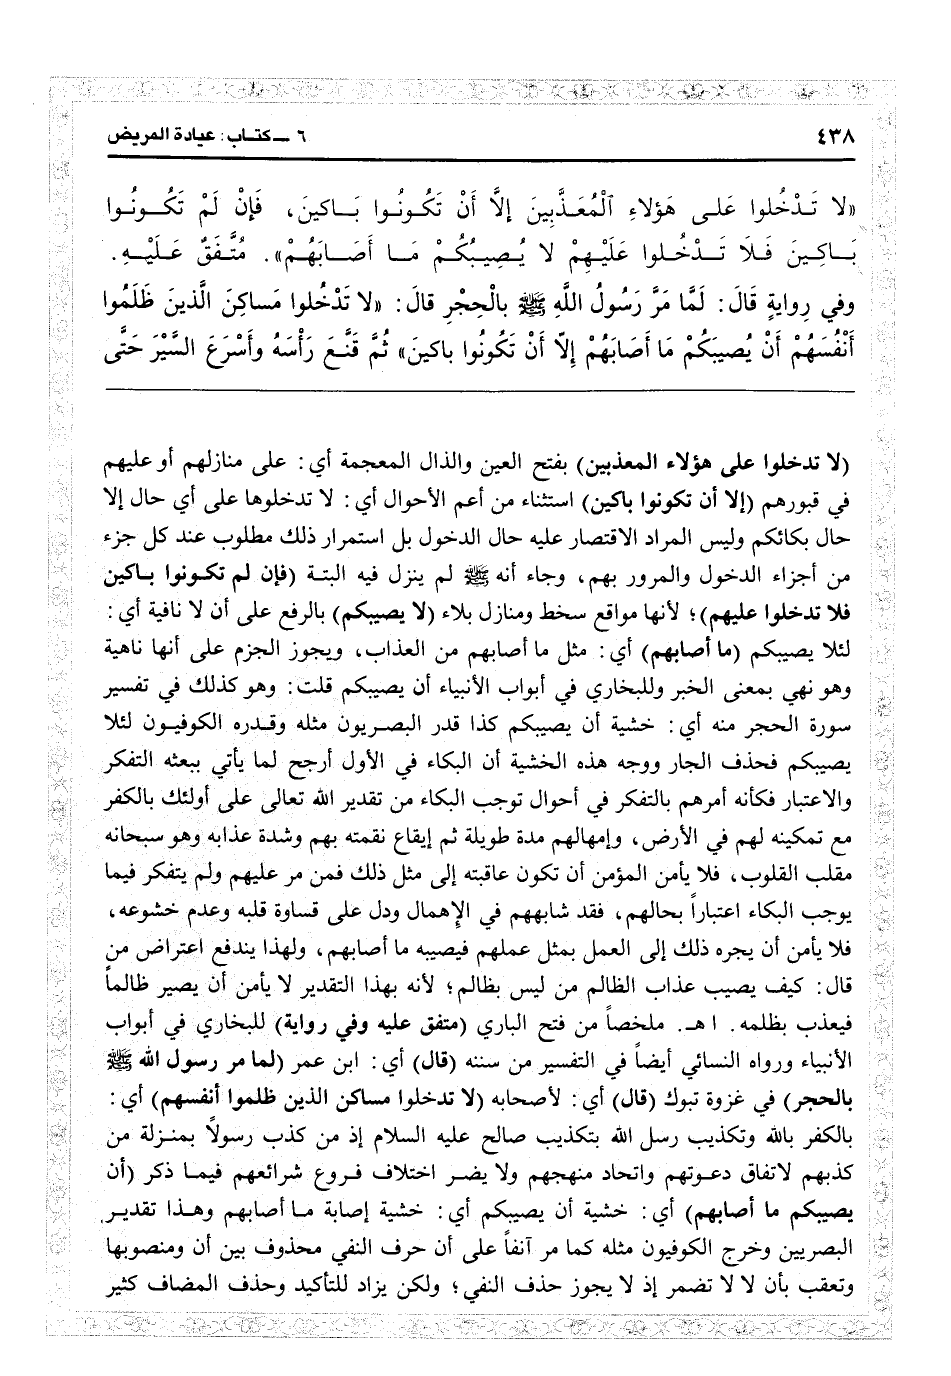 ٤٣٨
٦ ـ كتاب: عيادة المريض
«لا تَدْخُلوا عَلى هَؤلاءِ ٱلْمُعَذَّبِينَ إلَّا أَنْ تَكُونُوا بَاكينَ، فَإنْ لَمْ تَكُونُوا
بَاكِينَ فَلَا تَدْخُلوا عَلَيْهِمْ لا يُصِيبُكُمْ مَا أَصَابَهُمْ». مُتَّفَقٌ عَلَيْهِ.
وفي رِوايةٍ قَالَ: لَمَّا مَرَّ رَسُولُ اللَّهِ ﷺ بالْحِجْرِ قالَ: «لا تَدْخُلوا مَساكِنَ الَّذينَ ظَلَمُوا
أَنْفُسَهُمْ أَنْ يُصيبَكُمْ مَا أَصَابَهُمْ إلاّ أَنْ تَكُونُوا باكينَ» ثُمَّ قَنَّعَ رَأْسَهُ وأَسْرَعَ السَّيْرَ حَتَّى
(لا تدخلوا على هؤلاء المعذبين) بفتح العين والذال المعجمة أي: على منازلهم أو عليهم
في قبورهم (إلا أن تكونوا باكين) استثناء من أعم الأحوال أي: لا تدخلوها على أي حال إلا
حال بكائكم وليس المراد الاقتصار عليه حال الدخول بل استمرار ذلك مطلوب عند كل جزء
من أجزاء الدخول والمرور بهم، وجاء أنه ﷺ لم ينزل فيه البتة (فإن لم تكونوا باكين
فلا تدخلوا عليهم)؛ لأنها مواقع سخط ومنازل بلاء (لا يصيبكم) بالرفع على أن لا نافية أي:
لئلا يصيبكم (ما أصابهم) أي: مثل ما أصابهم من العذاب، ويجوز الجزم على أنها ناهية
وهو نهي بمعنى الخبر وللبخاري في أبواب الأنبياء أن يصيبكم قلت: وهو كذلك في تفسير
سورة الحجر منه أي: خشية أن يصيبكم كذا قدر البصريون مثله وقدره الكوفيون لئلا
يصيبكم فحذف الجار ووجه هذه الخشية أن البكاء في الأول أرجح لما يأتي ببعثه التفكر
والاعتبار فكأنه أمرهم بالتفكر في أحوال توجب البكاء من تقدير الله تعالى على أولئك بالكفر
مع تمكينه لهم في الأرض، وإمهالهم مدة طويلة ثم إيقاع نقمته بهم وشدة عذابه وهو سبحانه
مقلب القلوب، فلا يأمن المؤمن أن تكون عاقبته إلى مثل ذلك فمن مر عليهم ولم يتفكر فيما
يوجب البكاء اعتباراً بحالهم، فقد شابههم في الإهمال ودل على قساوة قلبه وعدم خشوعه،
فلا يأمن أن يجره ذلك إلى العمل بمثل عملهم فيصيبه ما أصابهم، ولهذا يندفع اعتراض من
قال: كيف يصيب عذاب الظالم من ليس بظالم؛ لأنه بهذا التقدير لا يأمن أن يصير ظالماً
فيعذب بظلمه. اهـ. ملخصاً من فتح الباري (متفق عليه وفي رواية) للبخاري في أبواب
الأنبياء ورواه النسائي أيضاً في التفسير من سننه (قال) أي: ابن عمر (لما مر رسول الله ﷺ
بالحجر) في غزوة تبوك (قال) أي: لأصحابه (لا تدخلوا مساكن الذين ظلموا أنفسهم) أي:
بالكفر بالله وتكذيب رسل الله بتكذيب صالح عليه السلام إذ من كذب رسولاً بمنزلة من
كذبهم لاتفاق دعوتهم واتحاد منهجهم ولا يضر اختلاف فروع شرائعهم فيما ذكر (أن
يصيبكم ما أصابهم) أي: خشية أن يصيبكم أي: خشية إصابة ما أصابهم وهذا تقدير
البصريين وخرج الكوفيون مثله كما مر آنفاً على أن حرف النفي محذوف بين أن ومنصوبها
وتعقب بأن لا لا تضمر إذ لا يجوز حذف النفي؛ ولكن يزاد للتأكيد وحذف المضاف كثير